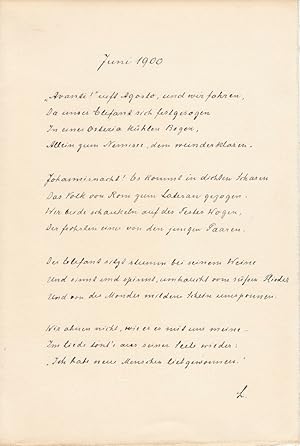 Juni 1900
„Avanti!" ruft Agosto, und wir fahren,
Da unser Elefant sich festgesogen
In einer Osteria kühlen Bogen,
Allein zum Nemisee, dem wunderklaren.
Johannisnacht! Es kommt in dichten Scharen
Das Volk von Rom zum Lateran gezogen.
Wir beide schaukeln auf des Festes Wogen,
Der frohsten eine von den jungen Paaren.
Der Elefant sitzt stumm bei seinem Weine
Und sinnt und spinnt, umhaucht vom süßen Flieder
Und von des Mondes mildem Schein umsponnen.
Wir ahnen nicht, wie er es mit uns meine –
Im Liede tönt's aus seiner Seele wieder:
„Ich habe neue Menschen liebgewonnen."
L.